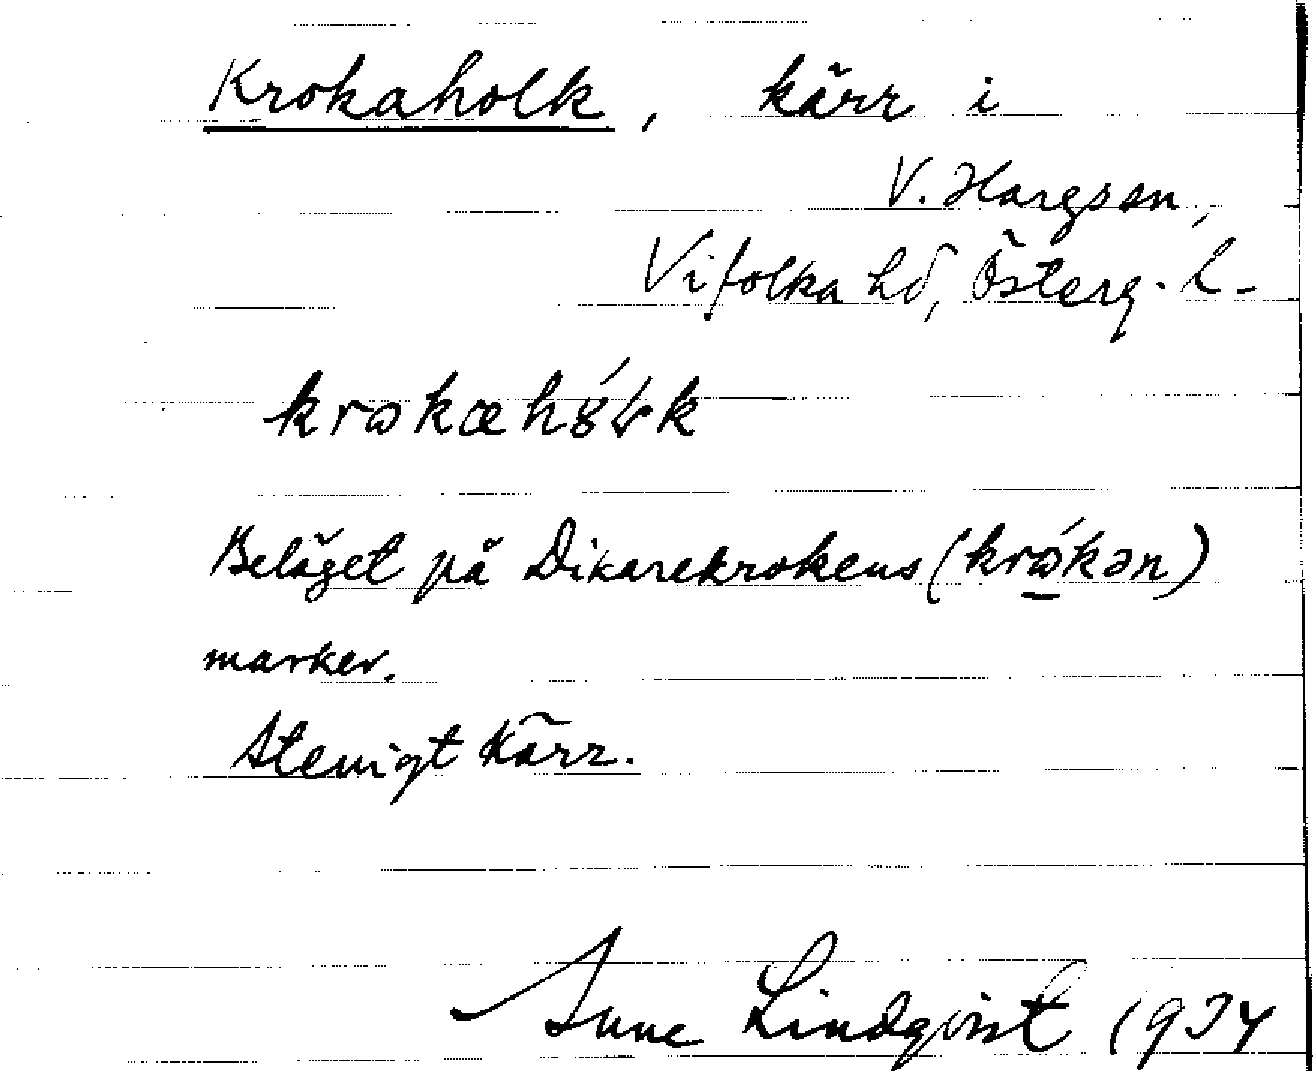 Krokaholk, kärr i
V. Hargs sn,
Vifolka hd, Österg. l.
krωkæh8́ɽk
Beläget på Dikarekrokens (krώkən)
marker.
Stenigt kärr.
Sune Lindqvist 1934